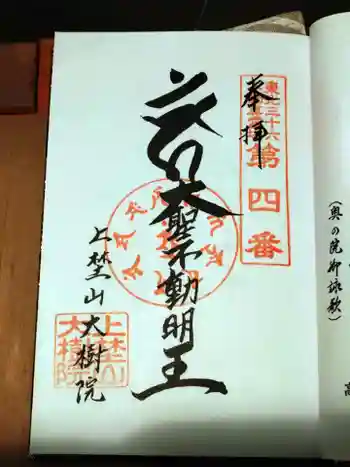 奉拝
東北三十六
第四番
大聖不動明王
上埜山
大樹院
上埜山
大樹院
(奥の院御詠歌)